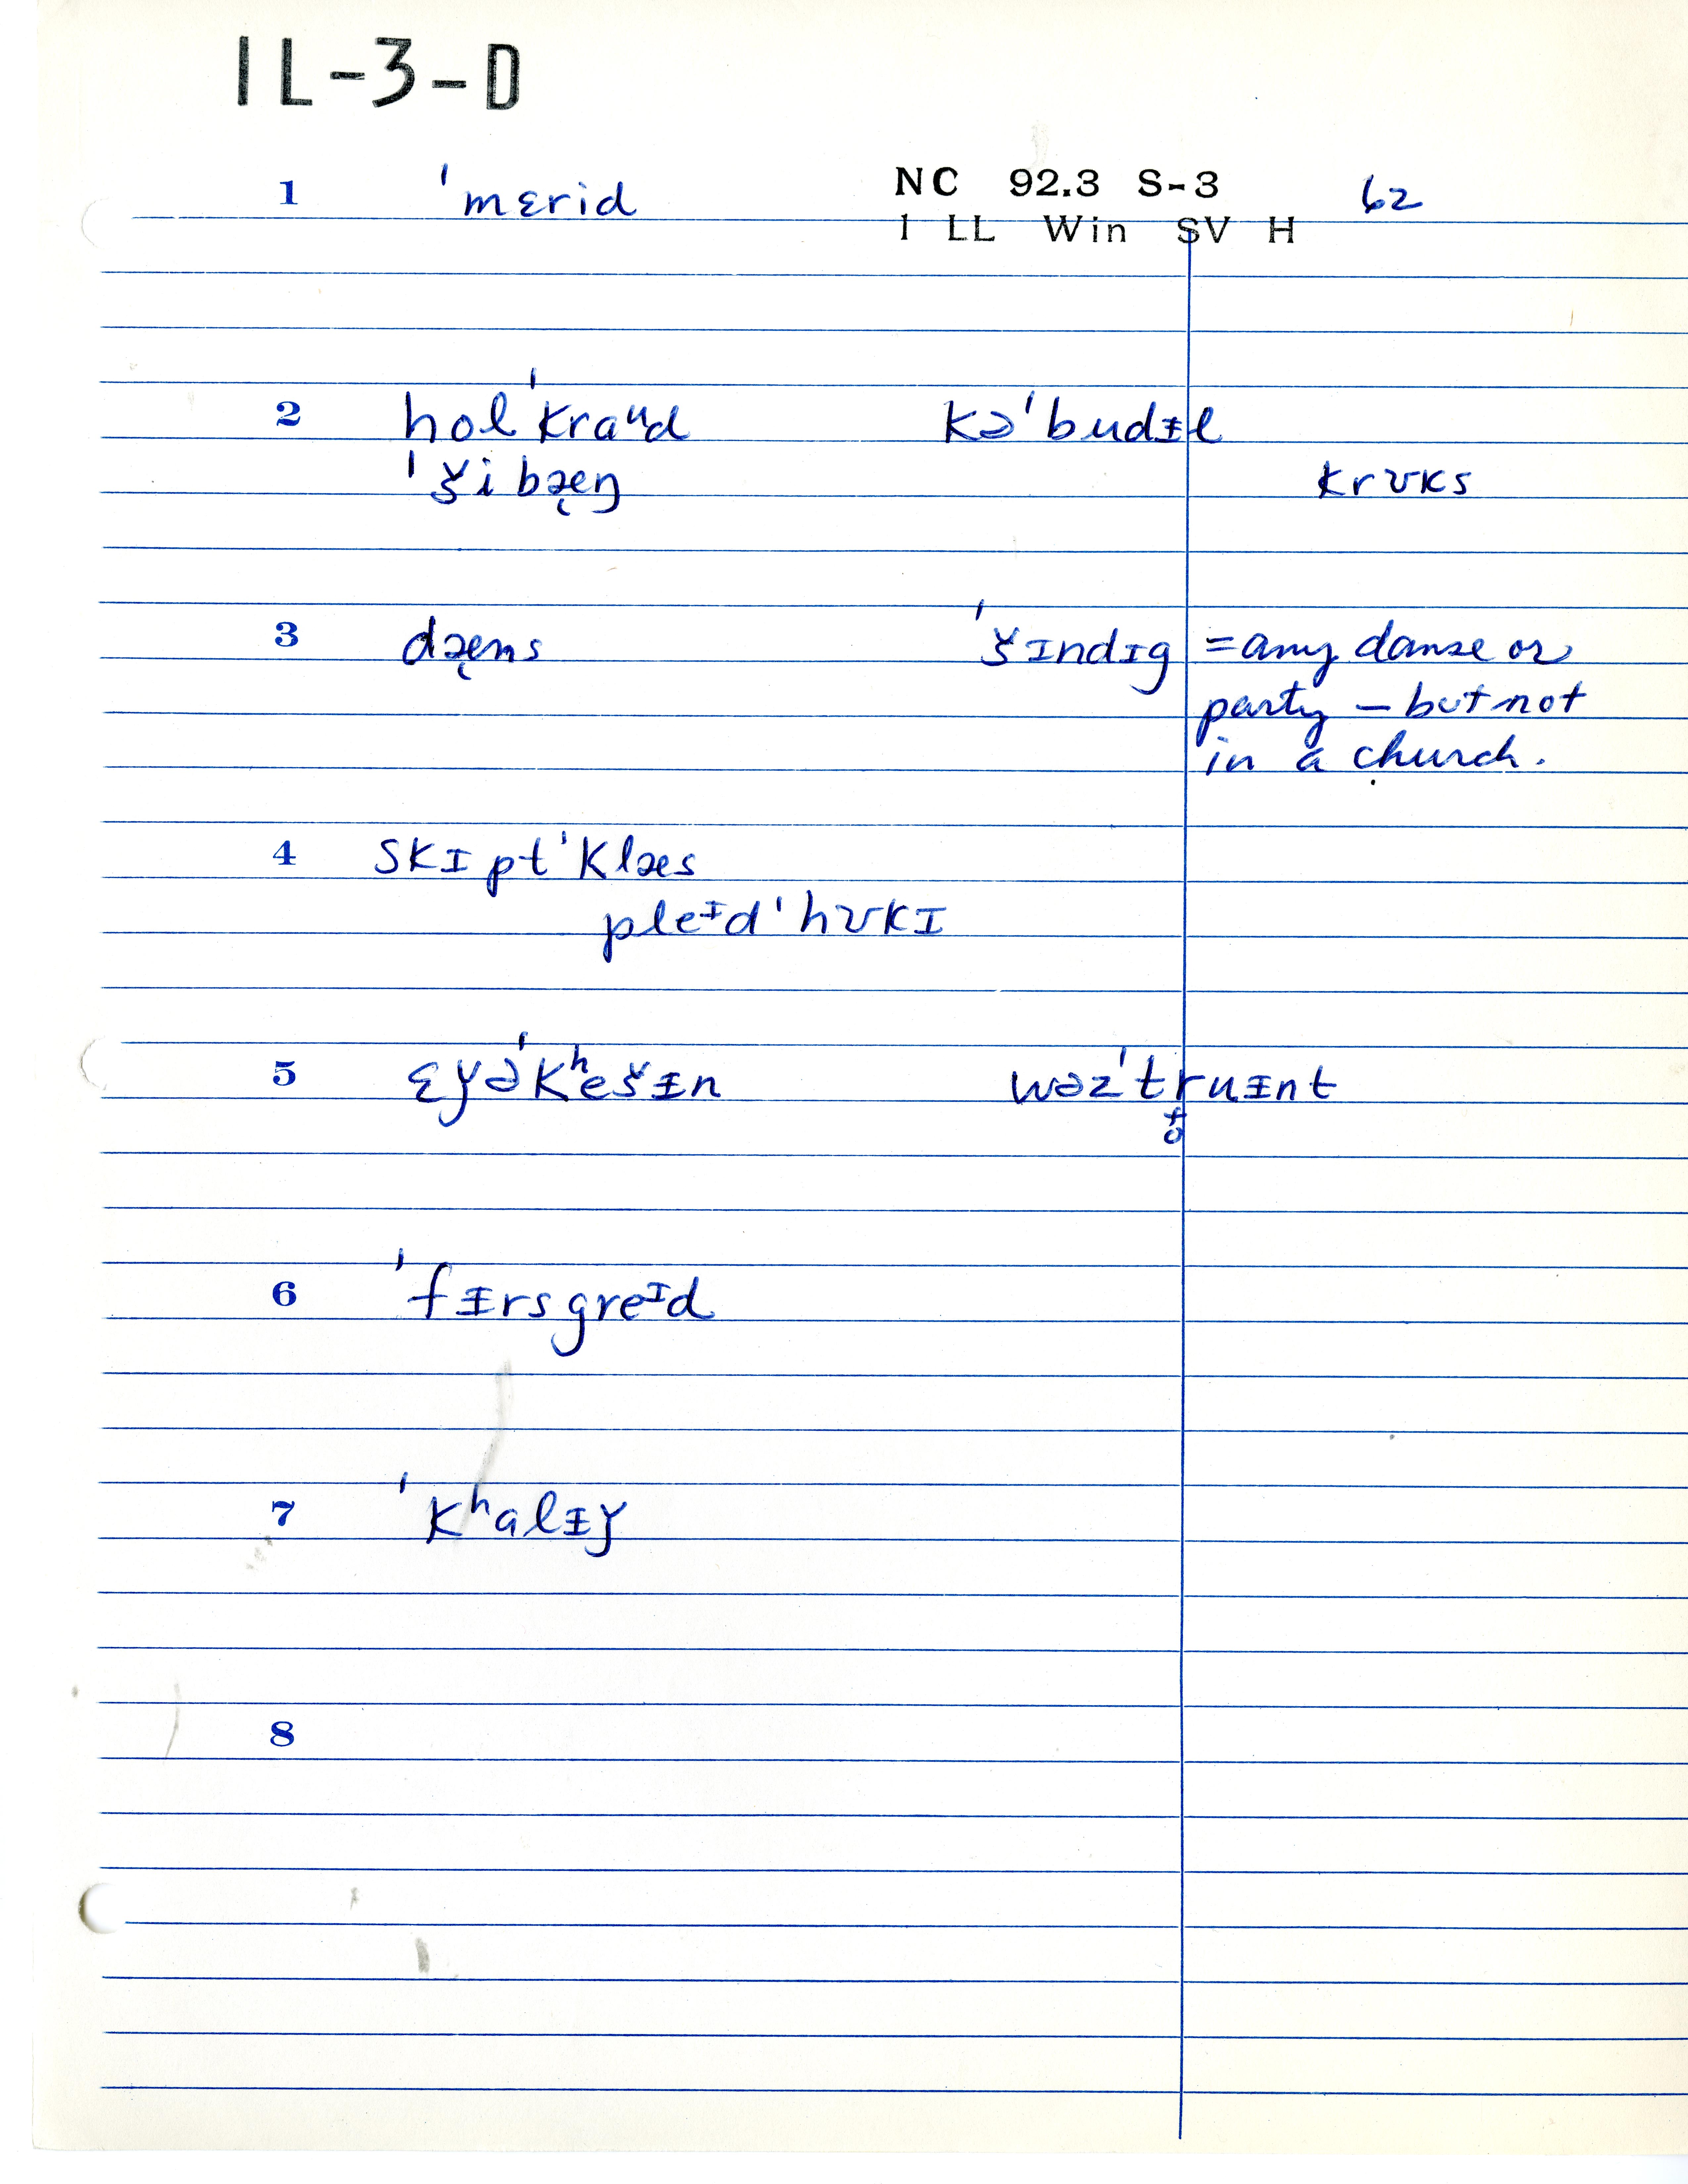 IL-3-D
1 ˈmɛrid NC 92.3 S-3 62
1 LL Win SV H
2 holˈkraᵘd kəˈbudᵻl
ˈšibæ̨ŋ krʊks
3 dæ̨ns ˈšɪndɪg = any danse or
party – but not
in a church.
4 skɪptˈklæs
pleᶦdˈhʊkɪ
5 ɛǰəˈkʰešᵻn wəzˈtruᵻnt
6 ˈfᵻrsgreᶦd
7 ˈkʰalᵻǰ
8